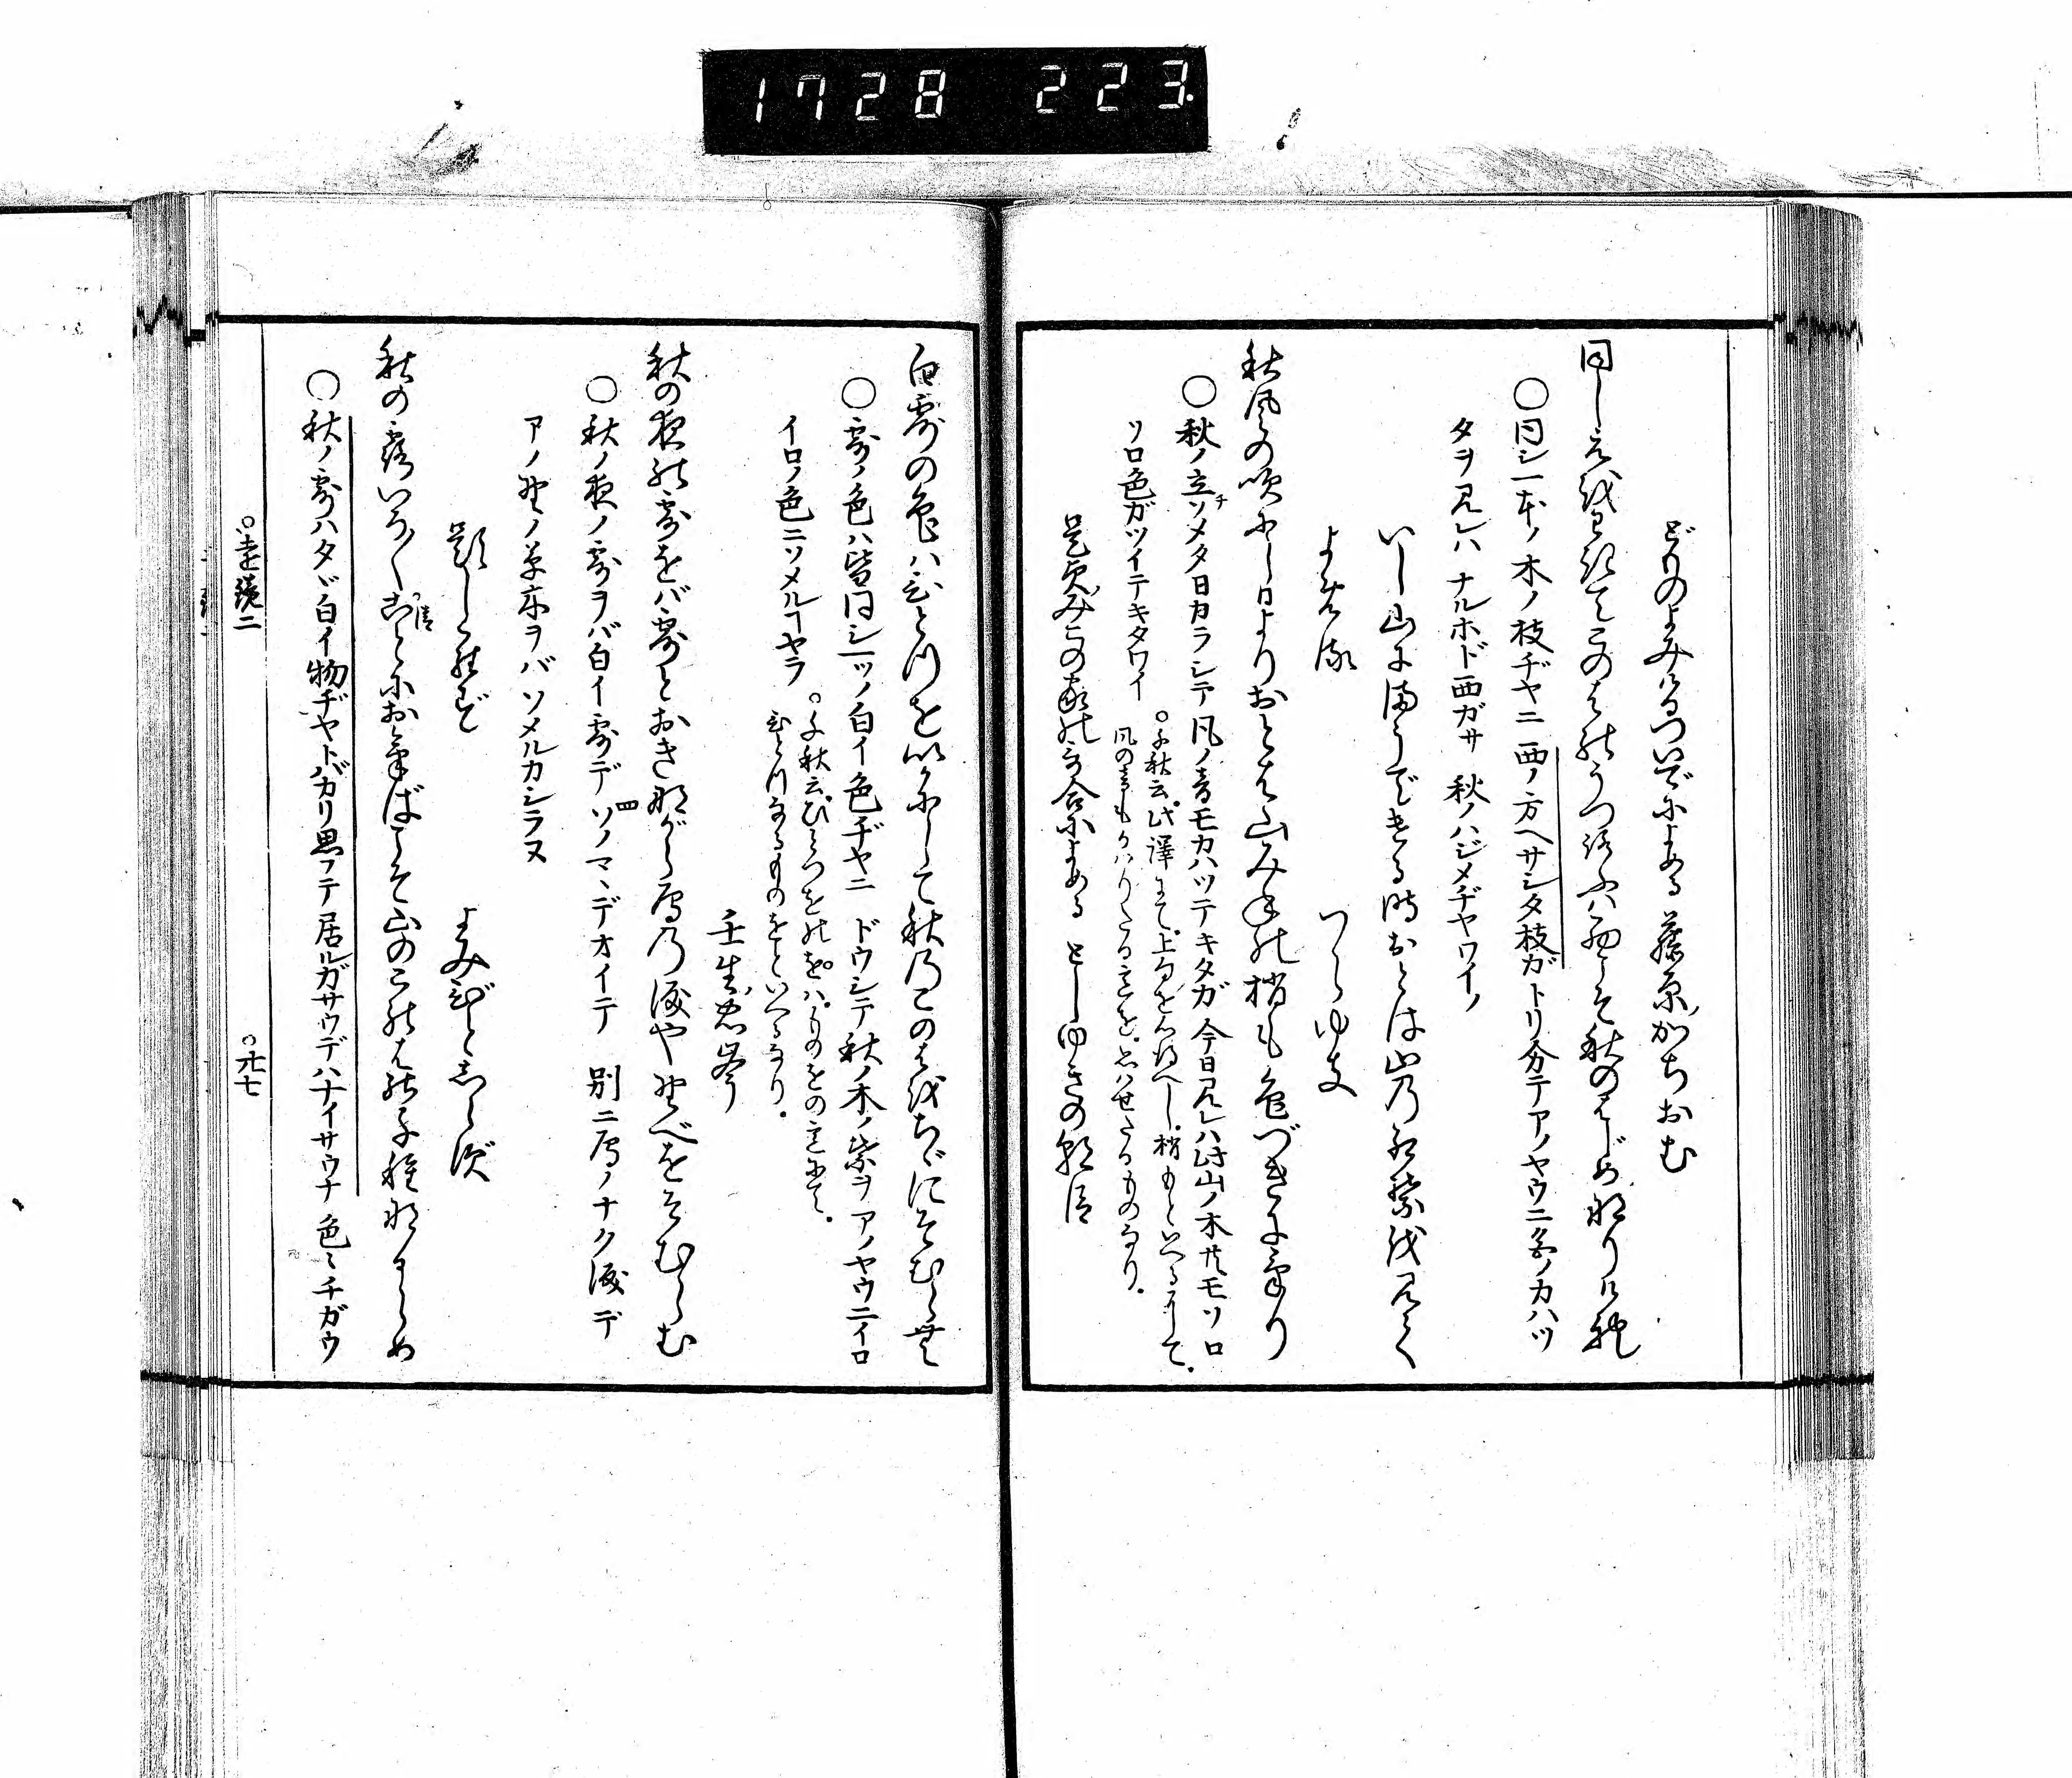 1728 223
どものよみけるついでによめる 藤原かちおむ
同じえをわきてこのはのうつろふは西こそ秋のはじめなりけれ
○同シ一本ノ木ノ枝ヂヤニ 西ノ方ヘサシタ枝ガトリ分テアノヤウニ色ノカハツ
タヲ見レハ ナルホド西ガサ 秋ノハジメヂヤワイノ
いし山にまうでける時おとは山の紅葉を見て
よめる つらゆき
秋風の吹にし日よりおとは山みねの梢も色づきにけり
○秋ノ立チソメタ日カラシテ風ノ音モカハツテキタガ 今日見レハ此山ノ木共モソロ
ソロ色ガツイテキタワイ
○千秋云此譯にて上句を心得へし梢もといへるにて
風の音もかはりたる意を思はせたるものなり
是貞みこの家の哥合によめる としゆきの朝臣
白露の色はひとつをいかにして秋のこのはをちゞにそむらむ
○露ノ色ハ皆同シ一ツノ白イ色ヂヤニ ドウシテ秋ノ木ノ葉ヲアノヤウニイロ
イロノ色ニソメルコヤラ
○千秋云ひとつをのをはものをの意にて
ひとつなるものをといへるなり
壬生忠岑
秋の夜の露をば露とおきながら鴈の涙や野べをそむらむ
○秋ノ夜ノ露ヲバ白イ露デ四ソノマヽデオイテ 別ニ鴈ノナク涙デ
アノ野ノ草木ヲバソメルカシラヌ
題しらず よみびとしらず
秋の露いろ〳〵ことにおけばこそ山のこのはのちくさなるらめ
○秋ノ露ハタヾ白イ物ヂヤトバカリ思フテ居ルガサウデハナイサウナ 色々チガウ
○遠鏡二 ○廿七